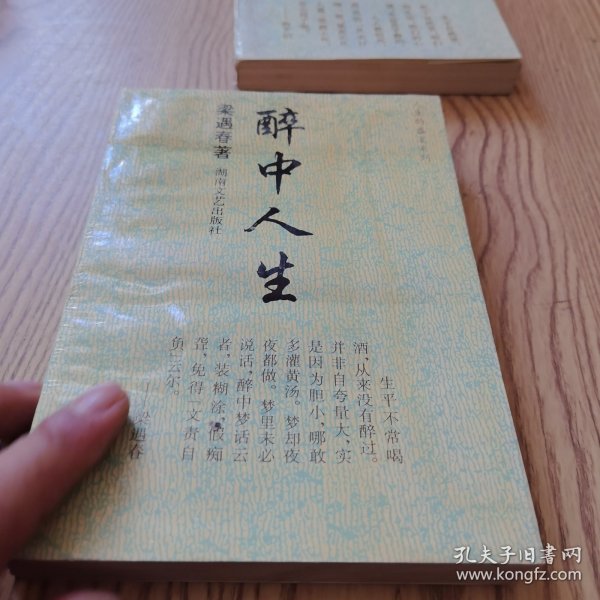 醉中人生
梁遇春著
湖南文艺出版社
生平不常喝
酒，从来没有醉过。
并非自夸量大，实
是因为胆小，哪敢
多灌黄汤。梦却夜
夜都做。梦里未必
说话，醉中梦话云
者，装糊涂，假痴
聋，免得“文责自
负”云尔。
——梁遇春
孔夫子旧书网
www.kongfz.com